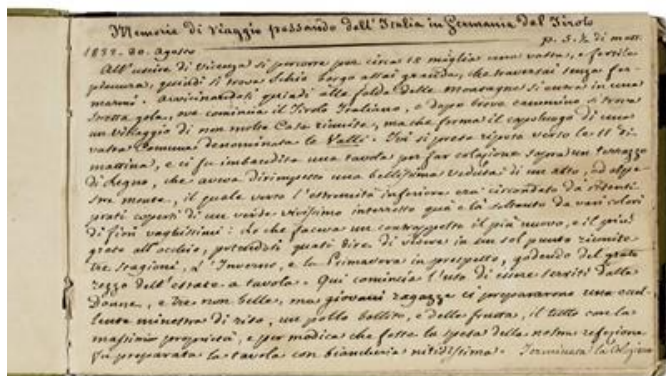 Memorie di Viaggio passando dall'Italia in Germania dal Tirolo
1832. 20. Agosto p. 5. ½ di matt.
All'uscire di Vicenza si percorre per circa 18 miglia una vasta, e fertile
pianura, quindi si trova Schio borgo assai grande, che traversai senza fer-
marmi. Avvicinandoti quindi alle falde delle Montagne si entra in una
stretta gola, ove comincia il Tirolo Italiano, e dopo breve cammino si trova
un villaggio di non molte Case riunite, ma che forma il capoluogo di una
vasta Comune denominata le Valli. Ivi si prese riposo verso le 11 di
mattina, e ci fu imbandita una tavola per far colazione sopra un terrazzo
di legno, che aveva dirimpetto una bellissima veduta di un alto, ed alpe-
stre monte, il quale verso l'estremità inferiore era circondato da
prati coperti di un verde vivissimo interrotto quà e là soltanto da vari colori
di fiori vaghissimi: ciò che faceva un contrapposto il più nuovo, e il più
grato all'occhio, potendosi quasi dire di vedere in un sol punto riunite
tre stagioni, l'Inverno, e la Primavera in prospetto, godendo del grato
rezzo dell'estate a tavola. Qui comincia l'uso di essere serviti dalle
Donne, e tre non belle, ma giovani ragazze ci prepararono una eccel-
lente minestra di riso, un pollo bollito, e delle frutta, il tutto con la
massima proprietà, e per modica che fosse la spesa della nostra refezione
fù preparata la tavola con biancheria nitidissima. Terminata la Colazione